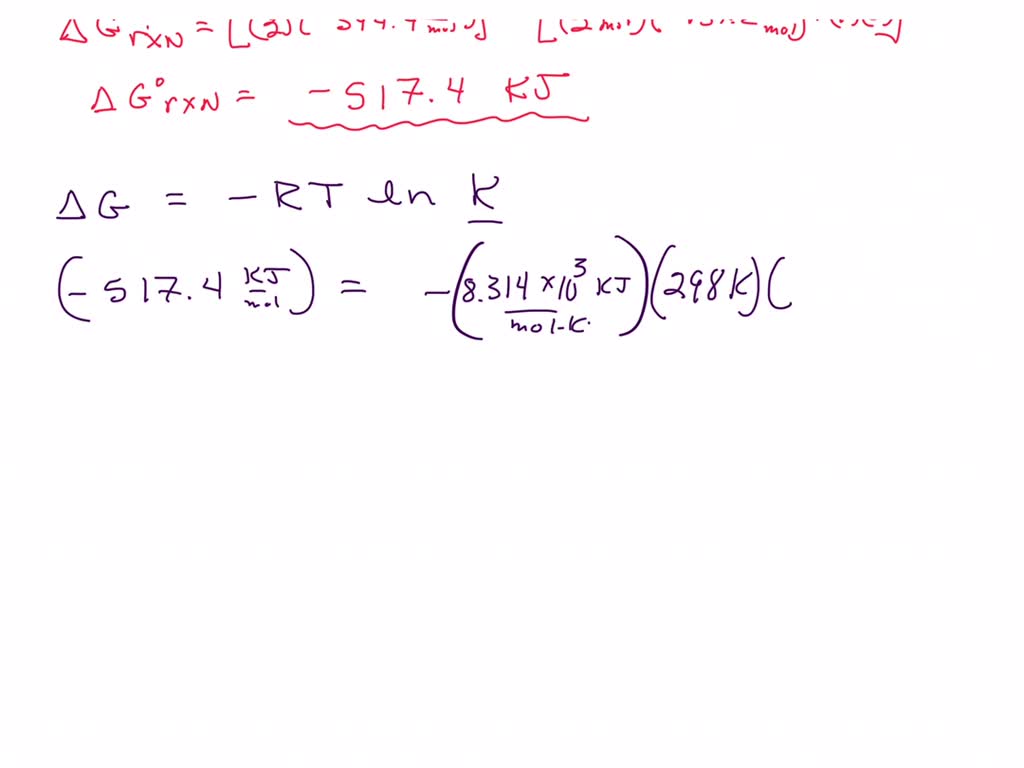 ΔG rxN = [(2)( 394.4 mol)] [(2mol)( mol)
ΔG°rxN = -517.4 KJ
ΔG = -RT ln K
(-517.4 KJ/mol) = -(8.314 ×10³ KJ/mol-K)(298K)(